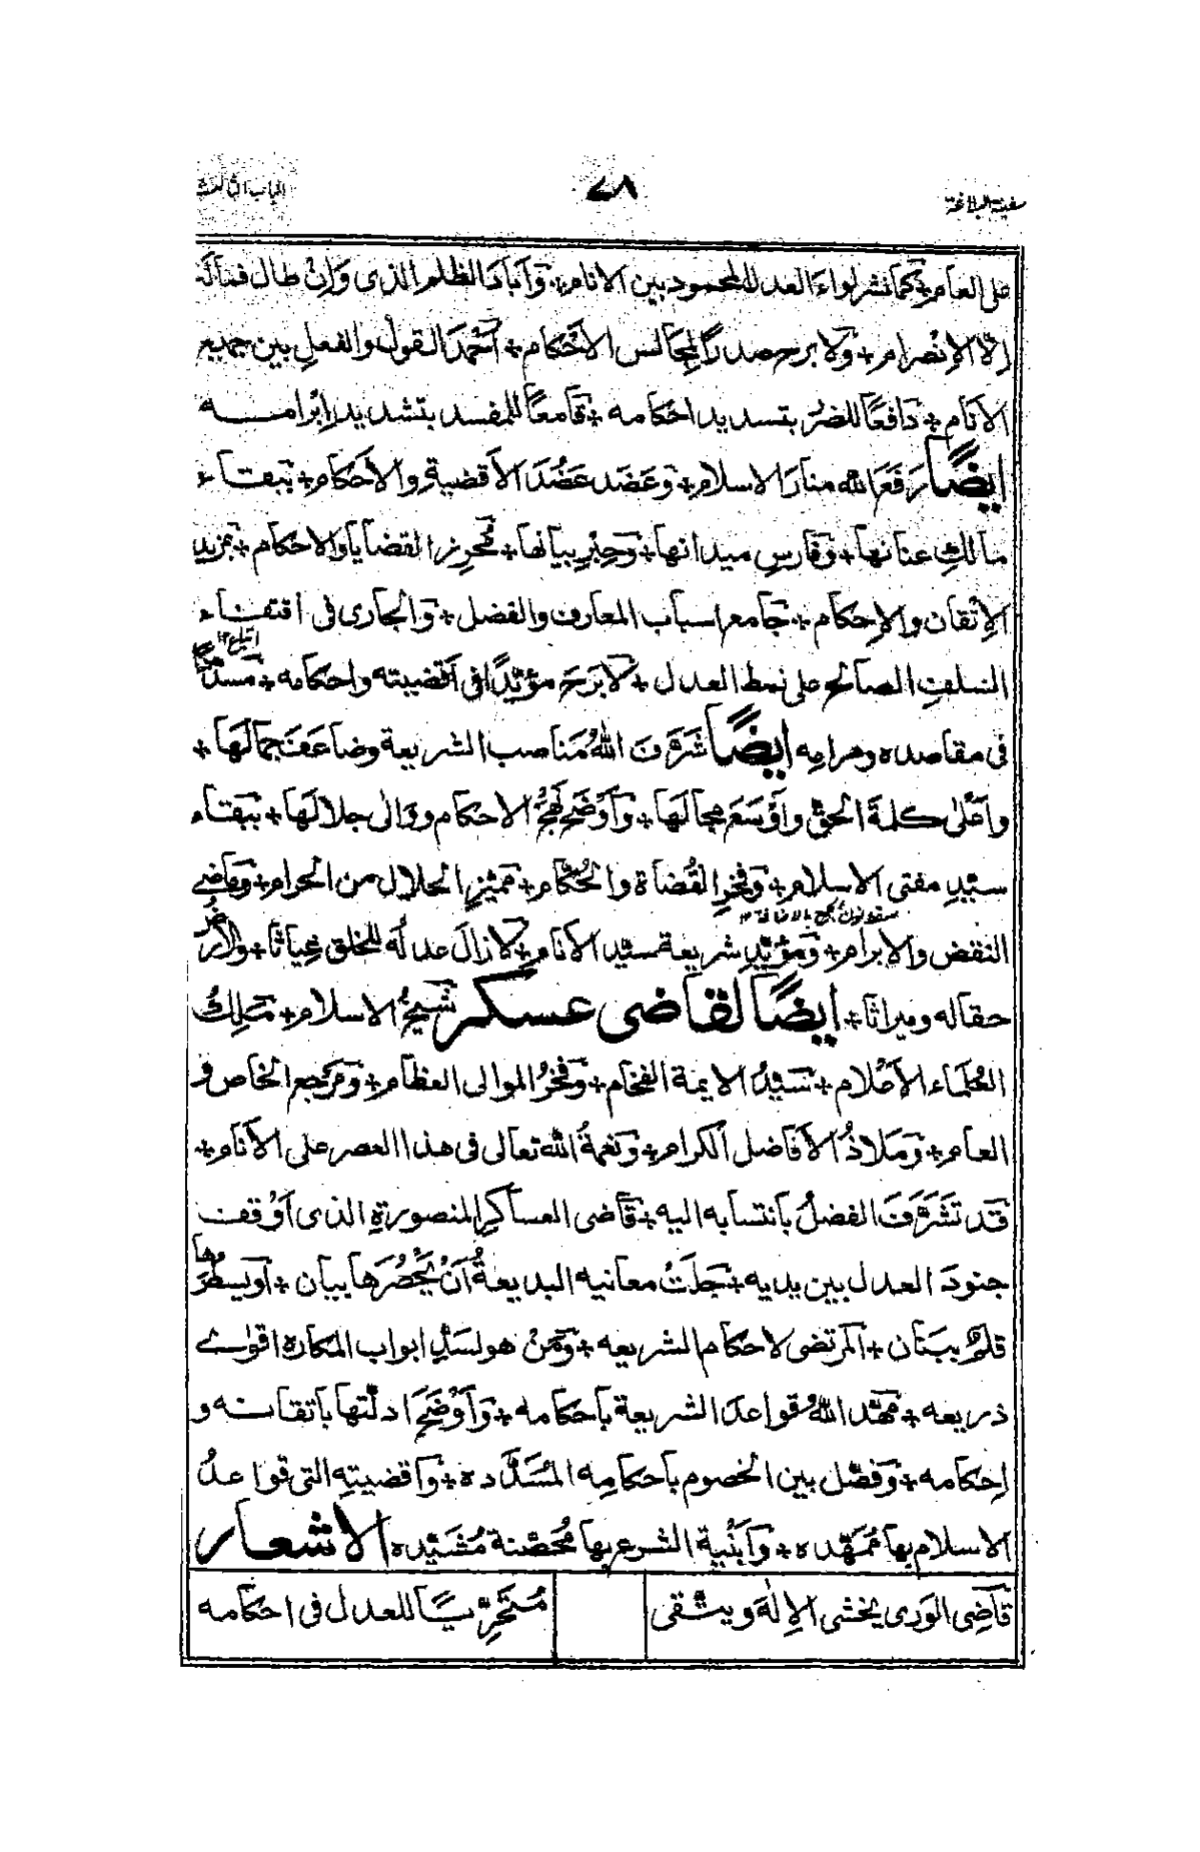 سفينة البلاغة ٧٨ الباب الثالث
على العام + كما نشر لواء العدل المحمود بين الانام + وَاَبادَ الظلم الذى وَاِنْ طال فمآله
اِلّا الاِنْصرام + وَلا برح صدرًا لمجالس الاَحْكام + اَحْمَدَ القول والفعل بين جميع
الاَنام + دافعًا للضر بتسديد احكامه + قامعًا للمفسد بتشديد اِبْرامه
ايضًا رَفَعَ الله منارَ الاسلام + وَعَضَد عَضُدَ الاَقضية والاَحكام + ببقاء
مالكِ عنانها + وَفارسِ ميدانها + وَحِبْرِ بيانها + مُحرِزِ القضايا والاحكام + بمزيد
الاِتْقان والاِحكام + جامع اسباب المعارف والفضل + وَالجارى فى اقتفاء
السلفِ الصالح على نمط العدل + لا بَرَحَ مؤيّدًا فى اَقضيته واحكامه + مسدّدًا
فى مقاصده ومرامه ايضًا شَرَّفَ اللهُ مَناصب الشريعة وضاعَفَ جمالَها +
واَعْلى كلمةَ الحقّ واَوْسَعَ مجالَها + وَاَوْضَحَ نَهْجَ الاحكام ووالى جلالَها + ببقاء
سيّدِ مفتى الاسلام + وَفخرِ القُضاة والحُكّام + مميّزِ الحلال من الحرام + وَقاضى
النقض والابرام + وَمؤيّدِ شريعة سيّد الاَنام + لا زالَ عدلُه للخلق غياثًا + والارضُ
حقا له وميراثا + ايضًا لقاضى عسكر شيخُ الاسلام + مَلِكُ
العُلَماء الاَعْلام + سَيّدُ الايمة الفخام + وَفخرُ الموالى العظام + وَمَرْجع الخاص و
العام + وَمَلاذُ الاَفاضل الكرام + وَنعمةُ الله تعالى فى هذا العصر على الاَنام +
قد تَشَرَّفَ الفضلُ بانتسابه اليه + قاضى العساكرِ المنصورةِ الذى اَوْقفت
جنودَ العدل بين يديه + جَلَّتْ معانيه البديعةُ اَنْ يَحْصُرَها ببيان + اَو يسطُرَها
قلم ببَنان + المرتضى لاحكام الشريعه + وَمَنْ هو لسَدِّ ابواب المكاره اقوى
ذريعه + مَهّدَ اللهُ قواعدَ الشريعة باحكامه + وَاَوْضَحَ ادلّتها باتقانه و
اِحكامه + وَفصّل بين الخصوم باحكامِه المُسَدَّده + وَاقضيتِه التى قواعدُ
الاسلام بها مُمَهّده + وَاَبْنية الشرع بها مُحصّنة مُشَيّده الاشعار
قاضِى الورى يخشى الاِلٰهَ ويتّقى مُتَحَرِّيًا للعدل فى احكامه